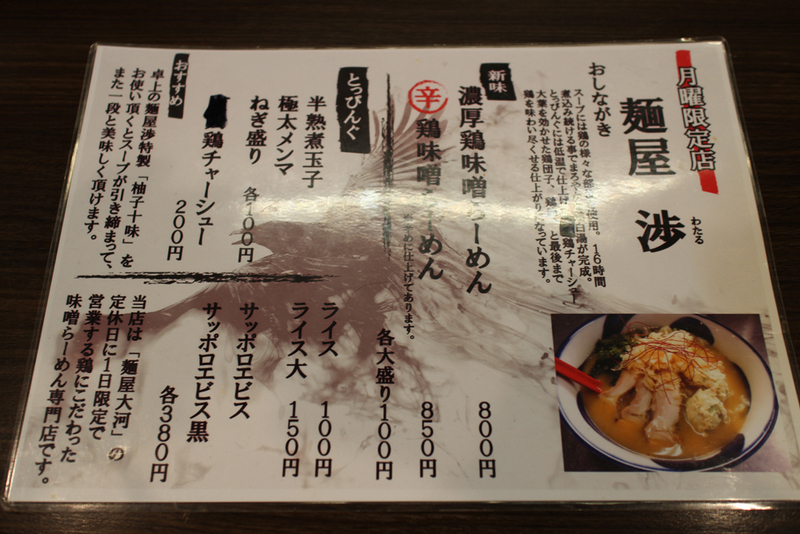 月曜限定店
麺屋 渉
わたる
おしながき
スープには鶏の様々な部
使用。16時間
煮込み続ける事でまろ
白湯が完成。
とっぴんぐには低温で仕上げ
鶏チャーシュー
大葉を効かせた鶏団子、鶏
と最後まで
鶏を味わい尽くせる仕上がり
なっています。
新味
濃厚鶏味噌らーめん 800円
辛 鶏味噌らーめん 850円
めに仕上げてあります。
各大盛り100円
とっぴんぐ
半熟煮玉子
極太メンマ
ねぎ盛り 各100円
鶏チャーシュー 200円
おすすめ
卓上の麺屋渉特製「柚子十味」を
お使い頂くとスープが引き締まって、
また一段と美味しく頂けます。
ライス 100円
ライス大 150円
サッポロエビス
サッポロエビス黒 各380円
当店は「麺屋大河」の
定休日に1日限定で
営業する鶏にこだわった
味噌らーめん専門店です。